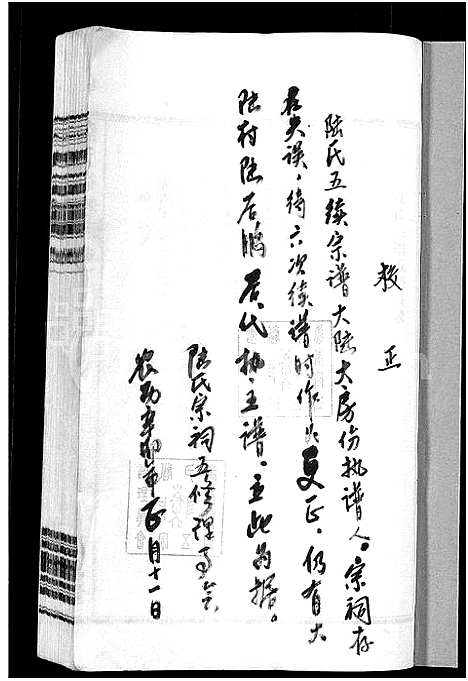 校正
陆氏五续宗谱大陆大房份执谱人。宗祠存
君失误，待六次续谱时作出更正，仍有大
陆村陆居鹏居代执主谱，立此为据。
陆氏宗祠五修理事会
农历辛卯年正月十一日